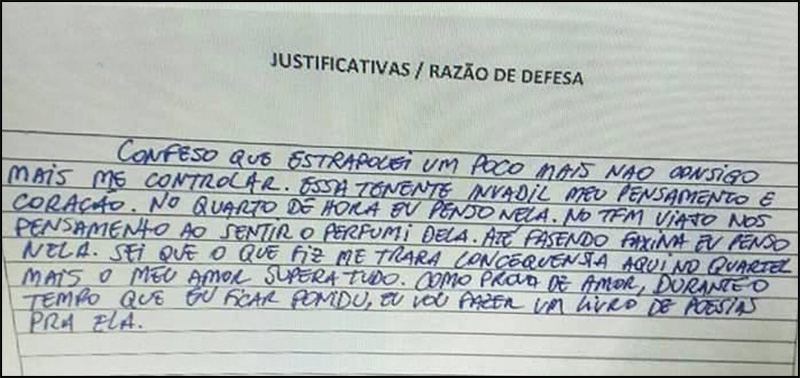 JUSTIFICATIVAS / RAZÃO DE DEFESA
CONFESO QUE ESTRAPOLEI UM POCO MAIS NAO CONSIGO
MAIS ME CONTROLAR. ESSA TENENTE INVADIL MEU PENSAMENTO E
CORAÇÃO. NO QUARTO DE HORA EU PENSO NELA. NO TFM VIAJO NOS
PENSAMENTO AO SENTIR O PERFUMI DELA. ATÉ FASENDO FAXINA EU PENSO
NELA. SEI QUE O QUE FIZ ME TRARA CONCEQUENSIA AQUI NO QUARTEL
MAIS O MEU AMOR SUPERA TUDO. COMO PROVA DE AMOR, DURANTE O
TEMPO QUE EU FICAR PONIDU, EU VOU FAZER UM LIVRO DE POESIAS
PRA ELA.